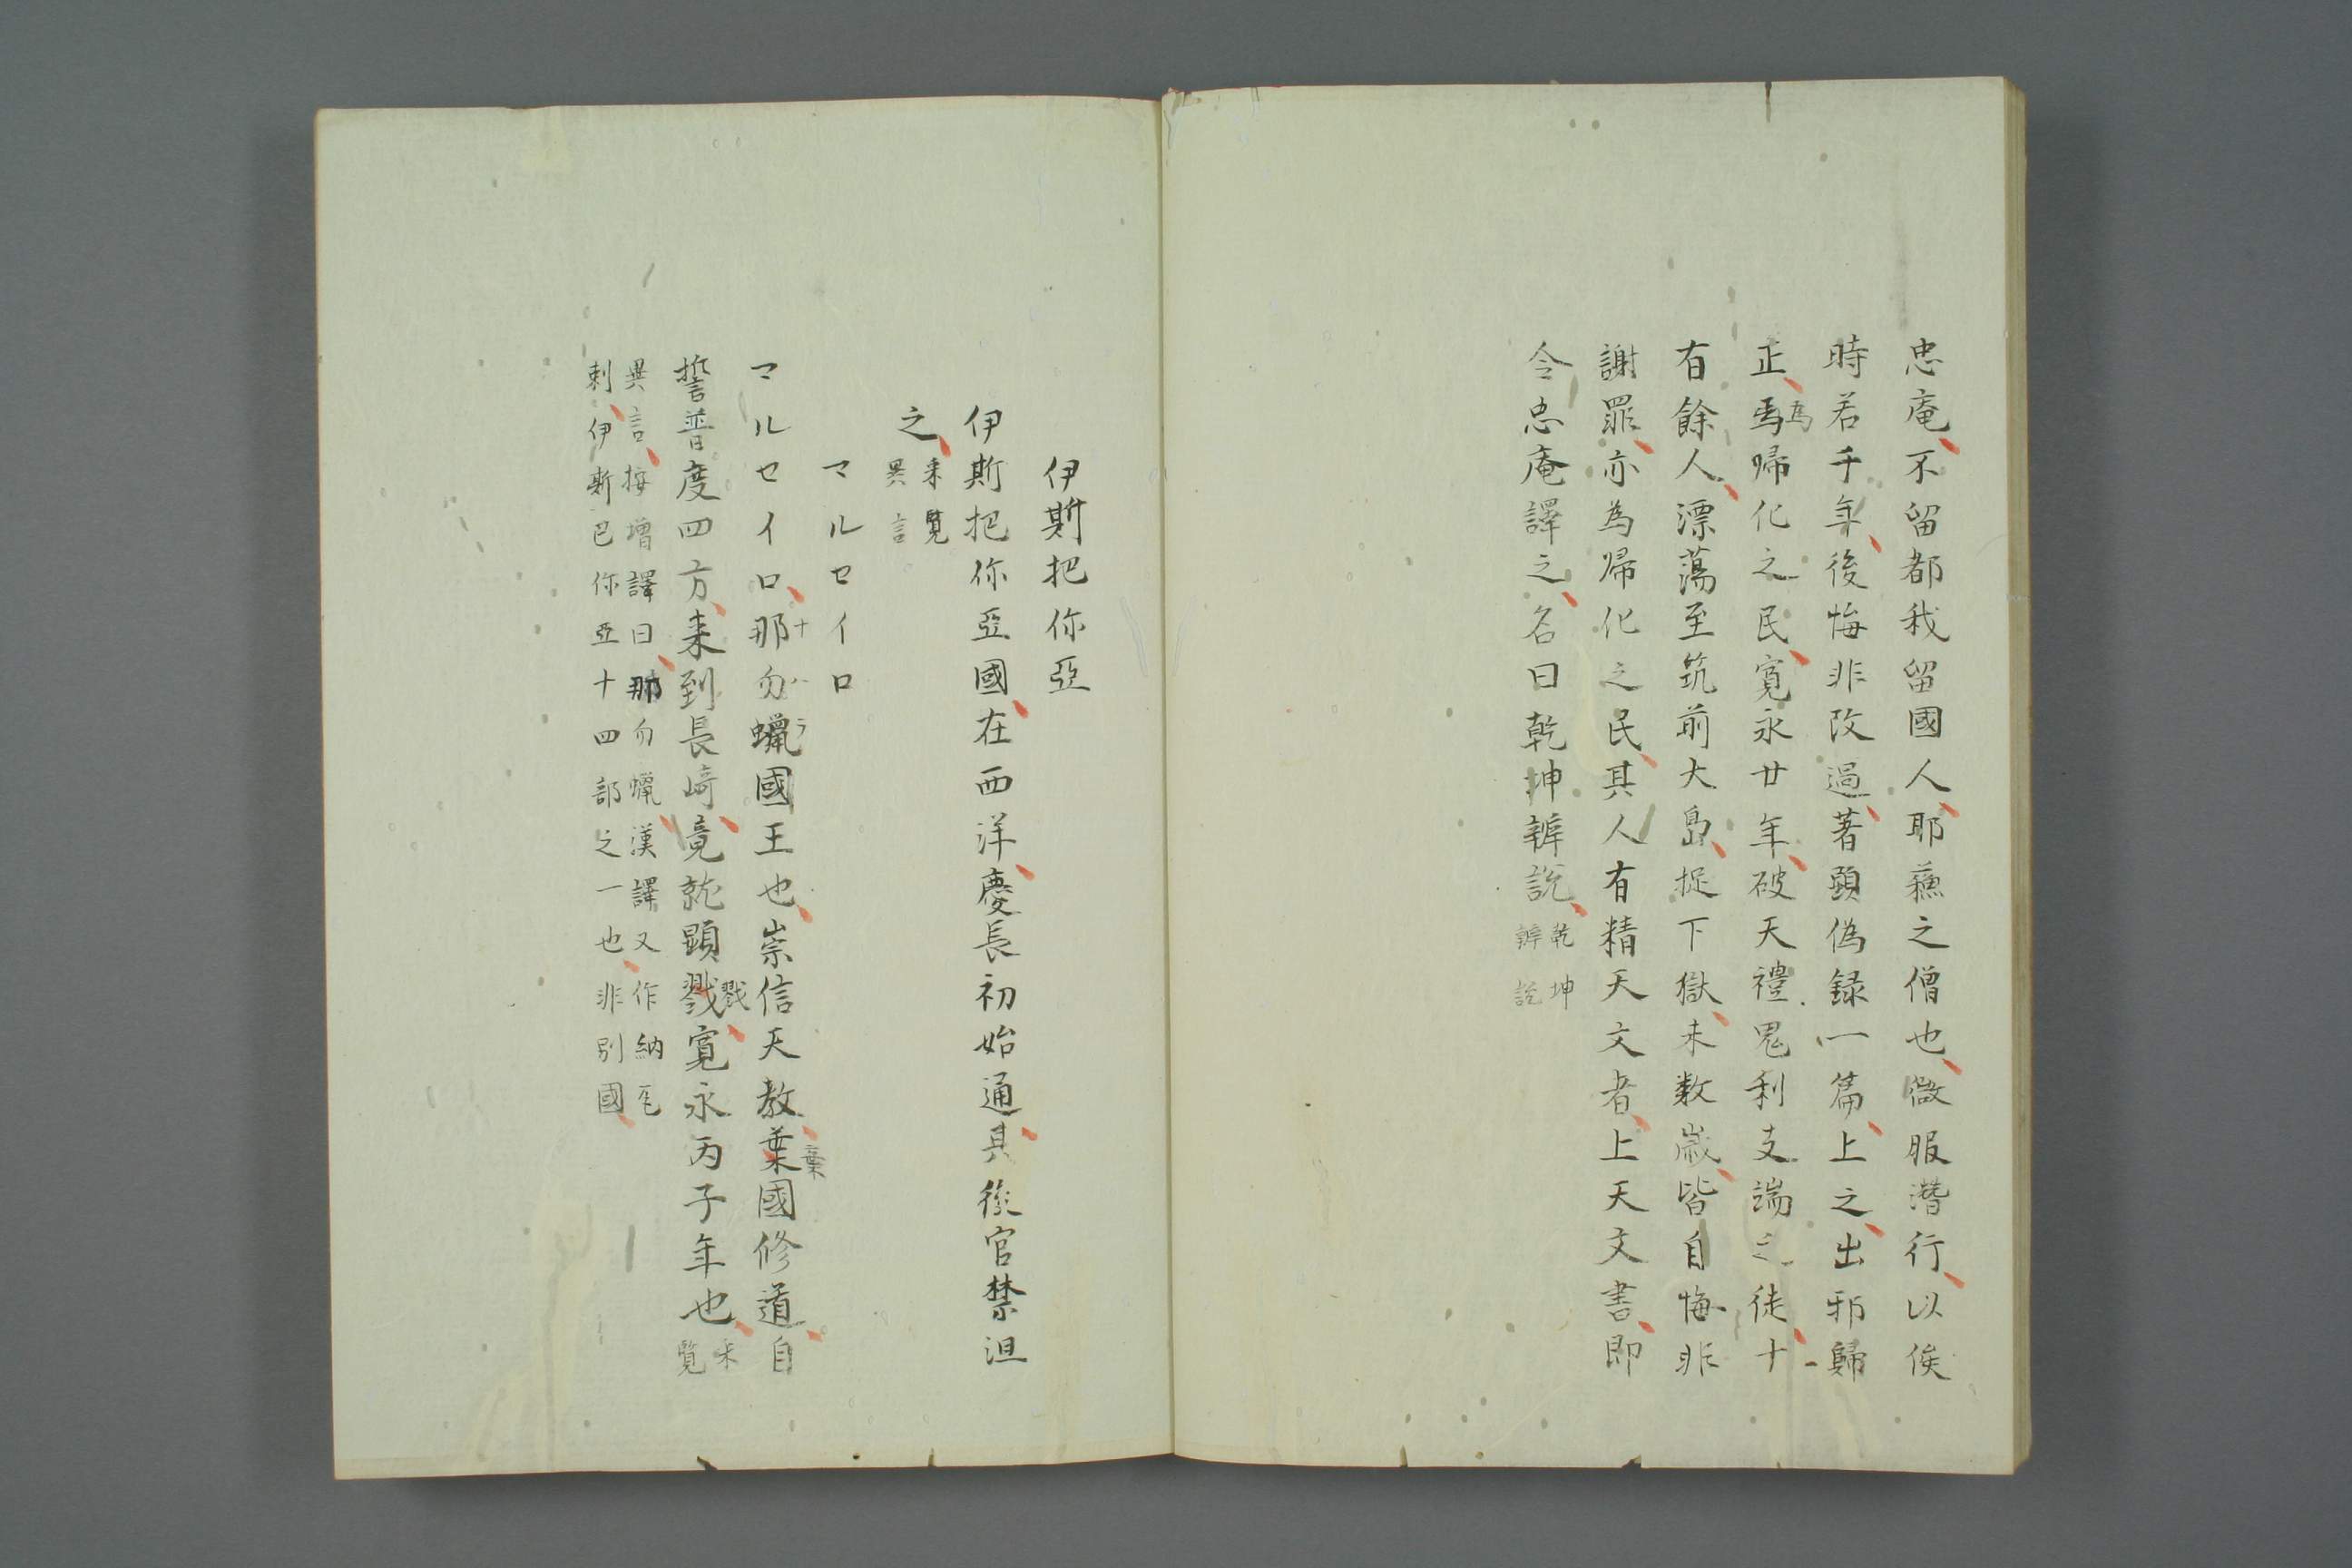 忠庵不留都我留國人耶蘓之僧也微服潛行以俟
時若千年後悔非改過著顕偽録一篇上之出邪歸
正爲帰化之民寛永廿年破天禮鬼利支端之徒十
有餘人漂蕩至筑前大島捉下獄未数歳皆自悔非
謝罪亦為帰化之民其人有精天文者上天文書即
令忠庵譯之名曰乾坤辨説乾坤
辨説
伊斯把你亞
伊斯把你亞國在西洋慶長初始通其後官禁沮
之采覧
異言
マルセイロ
マルセイロ那勿蠟國王也崇信天教棄國修道自
ナハラ
棄
誓普度四方来到長﨑竟就顕戮寛永丙子年也采
覧
戮
異言按増譯曰那勿蠟漢譯又作納
剌伊斯巴你亞十四部之一也非別國